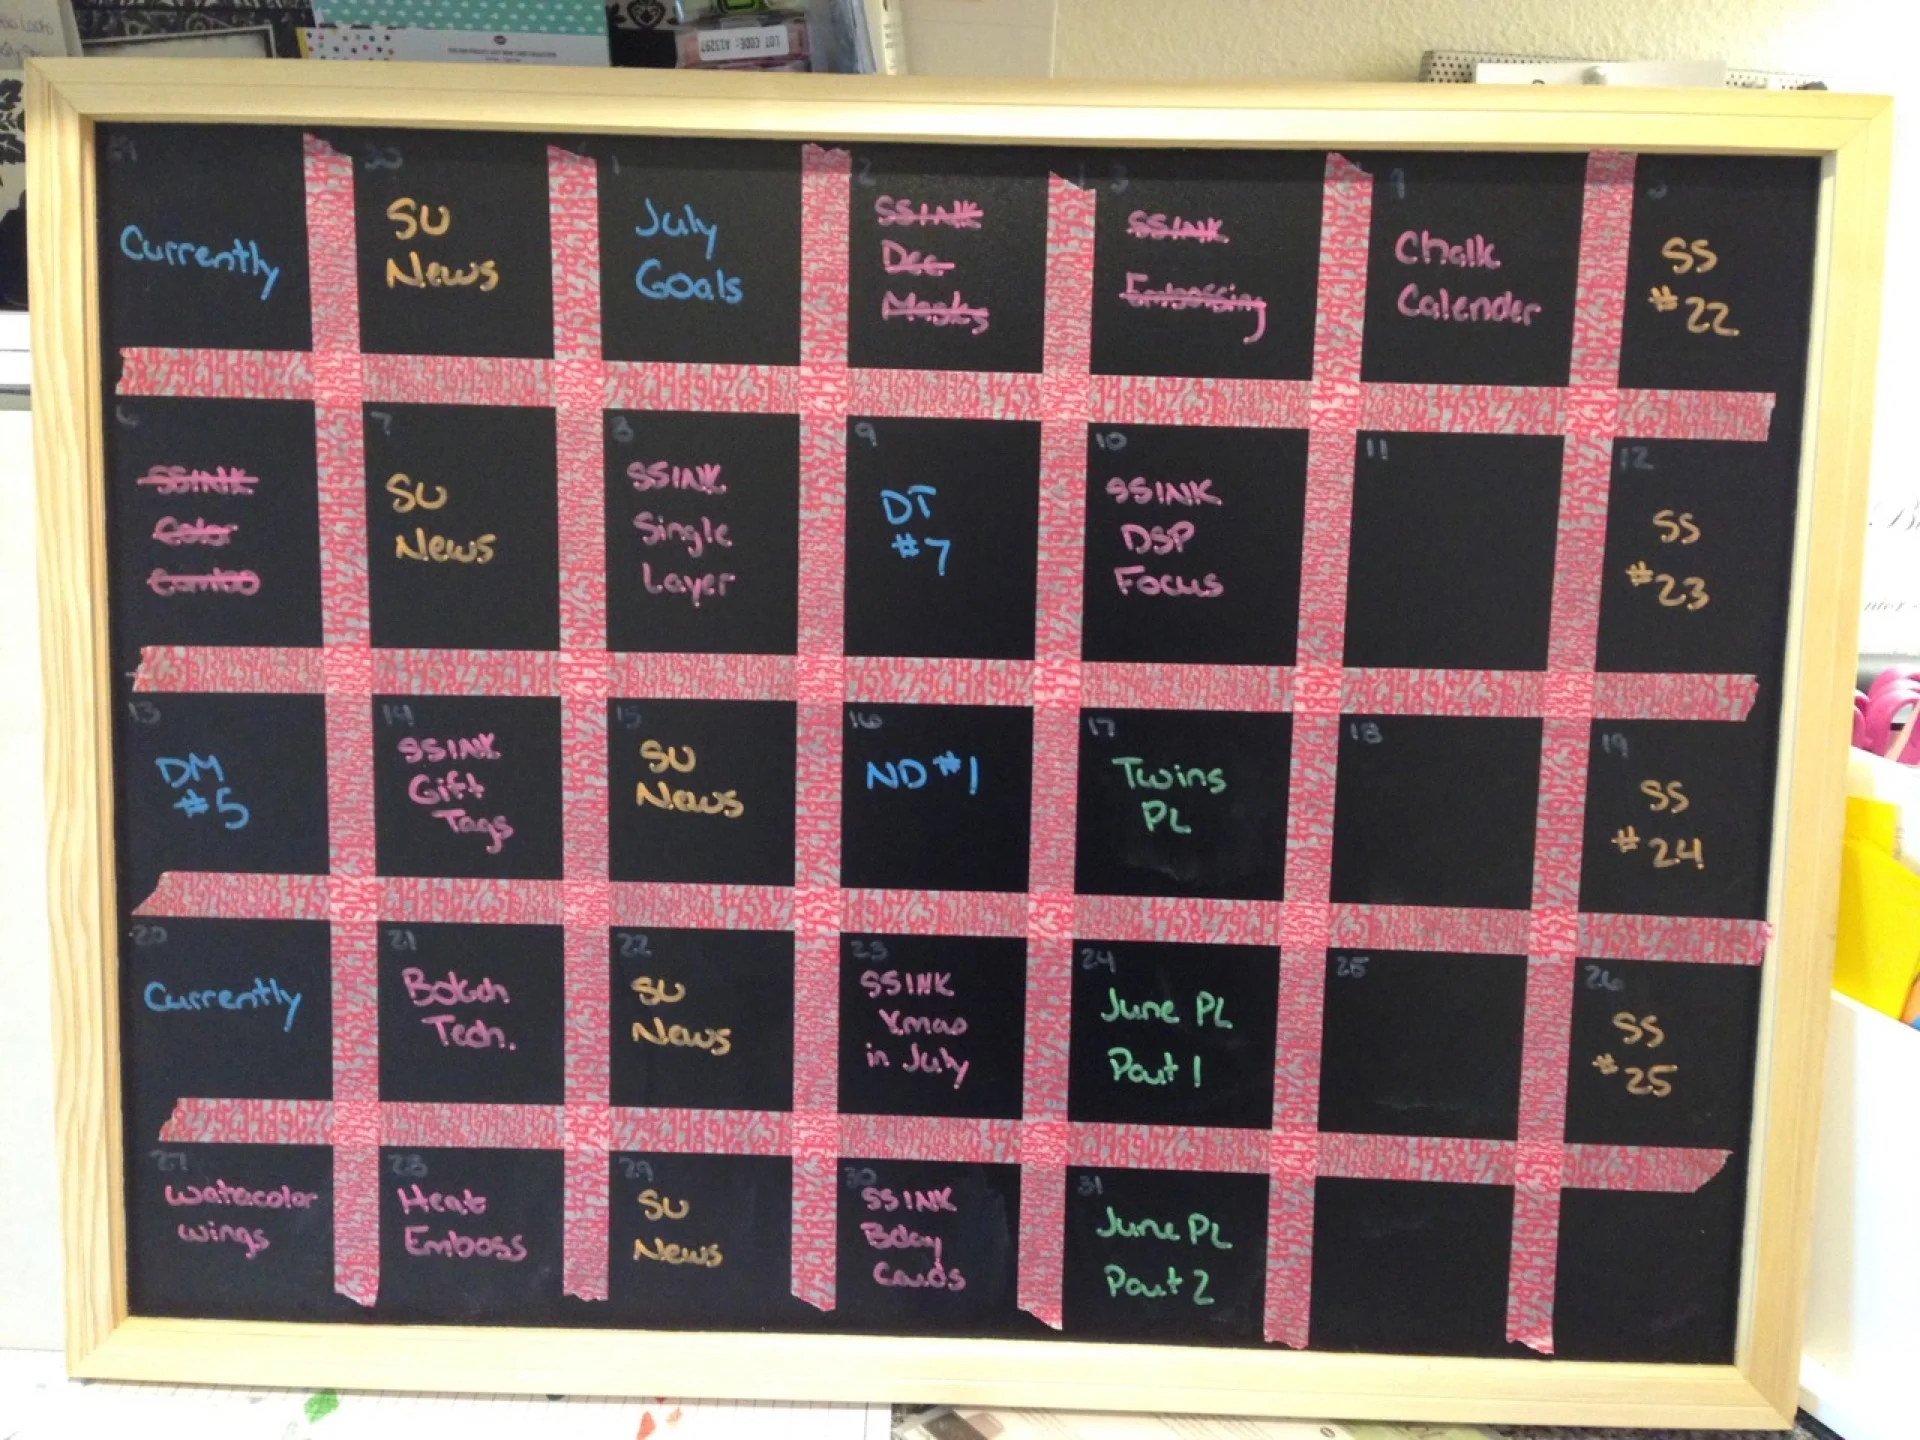 LOT CODE: A13297
30
1
2
3
4
5
Currently
SU
News
July
Goals
SSINK
Dec
Masks
SSINK
Embossing
Chalk
Calender
SS
#22
6
7
8
9
10
11
12
SSINK
Color
Combo
SU
News
SSINK
Single
Layer
DT
#7
SSINK
DSP
Focus
SS
#23
13
14
15
16
17
18
19
DM
#5
SSINK
Gift
Tags
SU
News
ND #1
Twins
PL
SS
#24
20
21
22
23
24
25
26
Currently
Botch
Tech.
SU
News
SSINK
Xmas
in July
June PL
Part 1
SS
#25
27
28
29
30
31
Watercolor
Wings
Heat
Emboss
SU
News
SSINK
Bday
Cards
June PL
Part 2